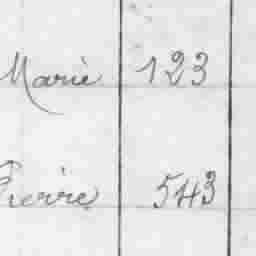 Marie 123
Pierre 543